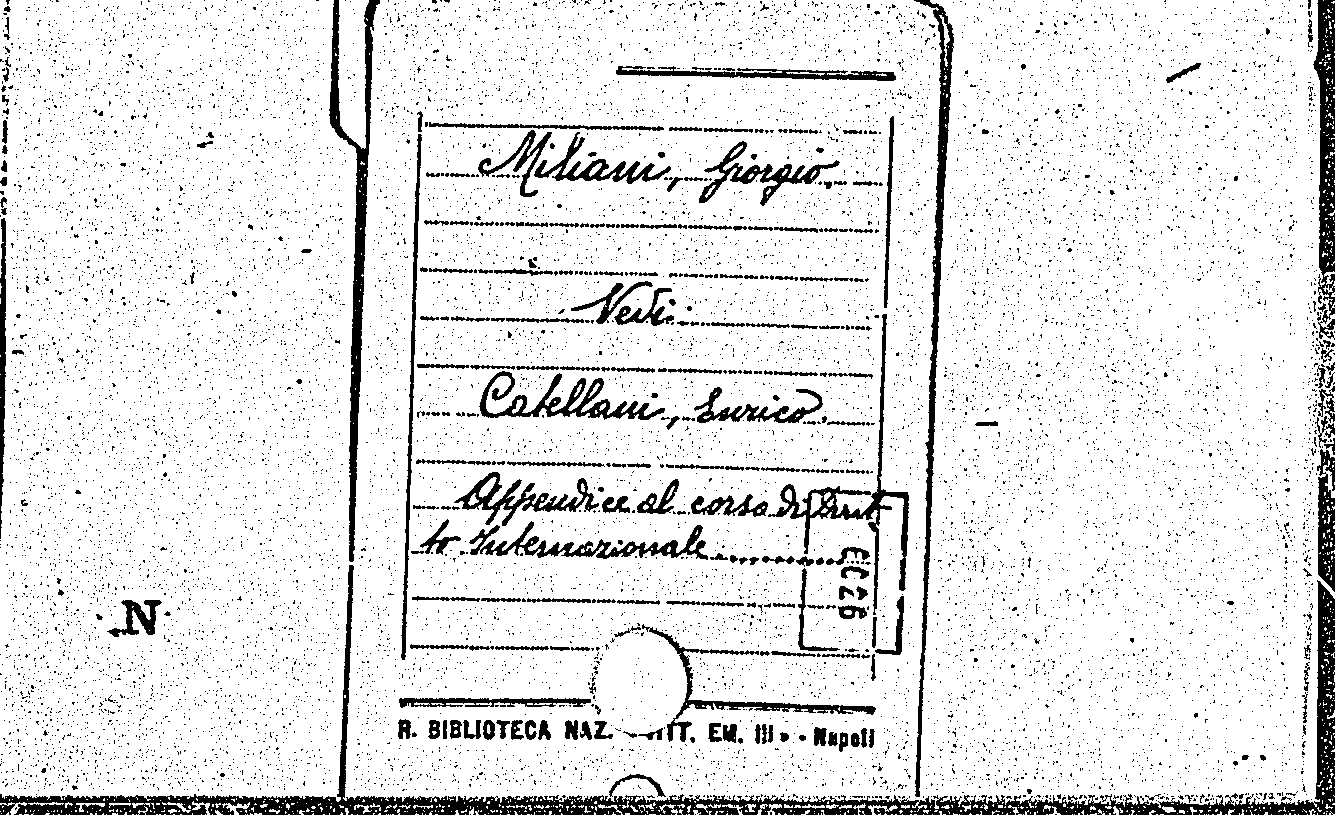 Miliani, Giorgio.
Vedi:
Catellani, Enrico.
Appendice al corso di Dirit,
to Internazionale
EC26
N
R. BIBLIOTECA NAZ. ITT. EM. III» - Napoli